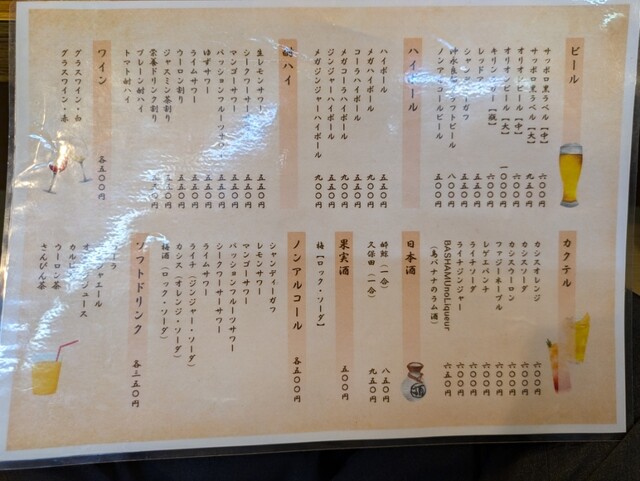 ビール
サッポロ黒ラベル【中】 六〇〇円
サッポロ黒ラベル【大】 九五〇円
オリオンビール【中】 六〇〇円
オリオンビール【大】 一〇〇〇円
キリン 【瓶】 六〇〇円
レッド
シャン ガフ
フトビール 八〇〇円
ノンアルコールビール 五〇〇円
ハイ ール
ハイボール 五五〇円
メガハイボール 九〇〇円
コーラハイボール 五五〇円
メガコーラハイボール 九〇〇円
ジンジャーハイボール 五五〇円
メガジンジャーハイボール 九〇〇円
酎ハイ
生レモンサワー 五五〇円
シークワーサーサワー 五五〇円
マンゴーサワー 五五〇円
パッションフルーツサワー 五五〇円
ゆずサワー 五五〇円
ライムサワー 五五〇円
ウーロン割り 五五〇円
ジャスミン茶割り 五五〇円
栄養ドリンク割り
プレーン酎ハイ
トマト酎ハイ
ワイン
グラスワイン・白
グラスワイン・赤
各五〇〇円
カクテル
カシスオレンジ 六〇〇円
カシスソーダ 六〇〇円
カシスウーロン 六〇〇円
ファジーネーブル 六〇〇円
レゲエパンチ 六〇〇円
ライチソーダ 六〇〇円
ライチジンジャー 六〇〇円
BASHAMUnoLiqueur 六五〇円
(島バナナのラム酒)
日本酒
酔鯨(一合) 八五〇円
久保田(一合) 九五〇円
果実酒 五〇〇円
梅【ロック・ソーダ】
ノンアルコール 各五〇〇円
シャンディーガフ
レモンサワー
マンゴーサワー
パッションフルーツサワー
シークワーサーサワー
ライムサワー
ライチ(ジンジャー・ソーダ)
カシス(オレンジ・ソーダ)
梅酒(ロック・ソーダ)
ソフトドリンク 各三五〇円
ーラ
ジャエール
オ ュース
カル
ウーロン茶
さんぴん茶